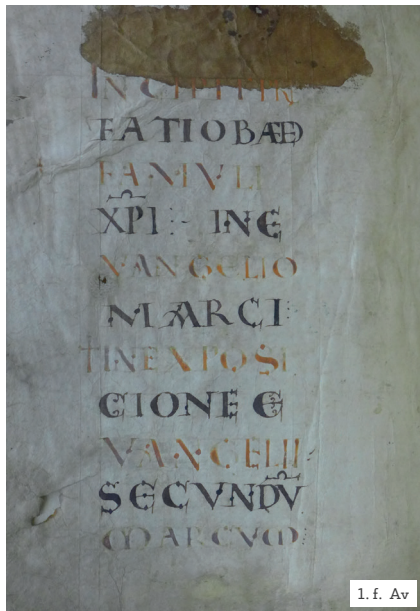 INCIPITPR
FATIO BAED
FAMVLI
XP̅I :- IN E
VANGELIO
MARCI
T IN EXPOSI
CIONE E
VANGELII
SECVNDV̅
MARCVM
1. f. Av